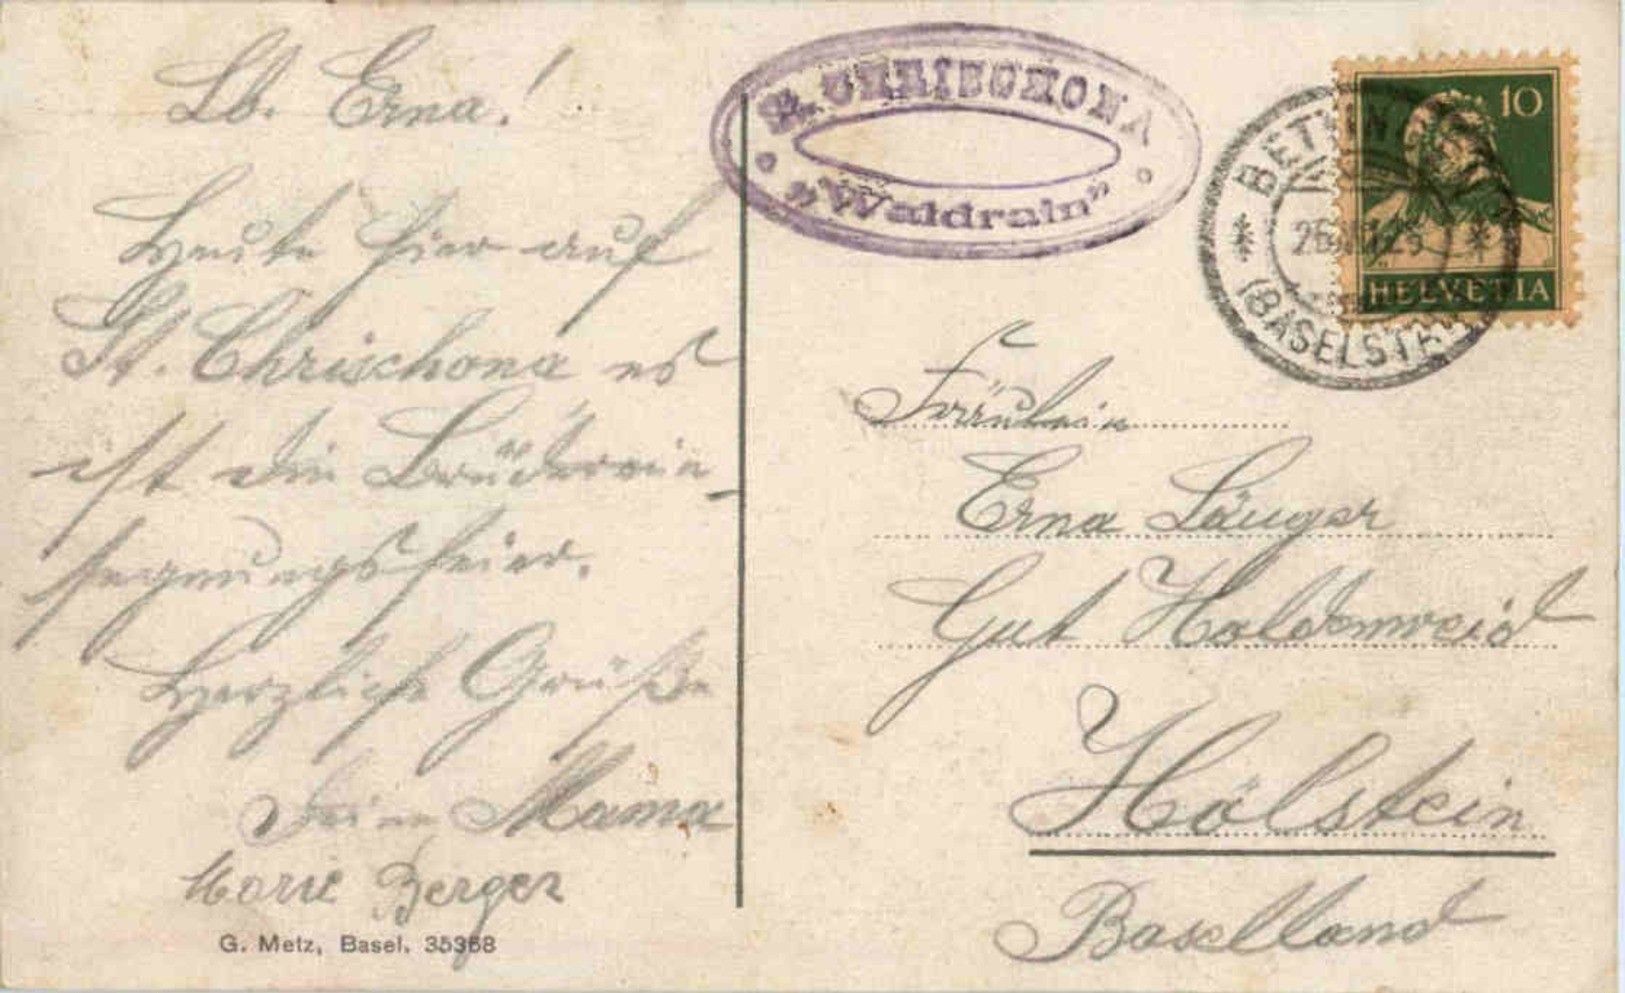 Lb. Erna!
Heute hier auf
St. Chrischona es
ist die Brüderein-
segnungsfeier.
Herzliche Grüße
Deine Mama
Marie Berger
G. Metz, Basel. 35368
St. CHRISCHONA
"Waldrain"
BETTINGEN
(BASELSTADT)
10
HELVETIA
Fräulein
Erna Läuger
Gut Holdenweid
Hölstein
Baselland